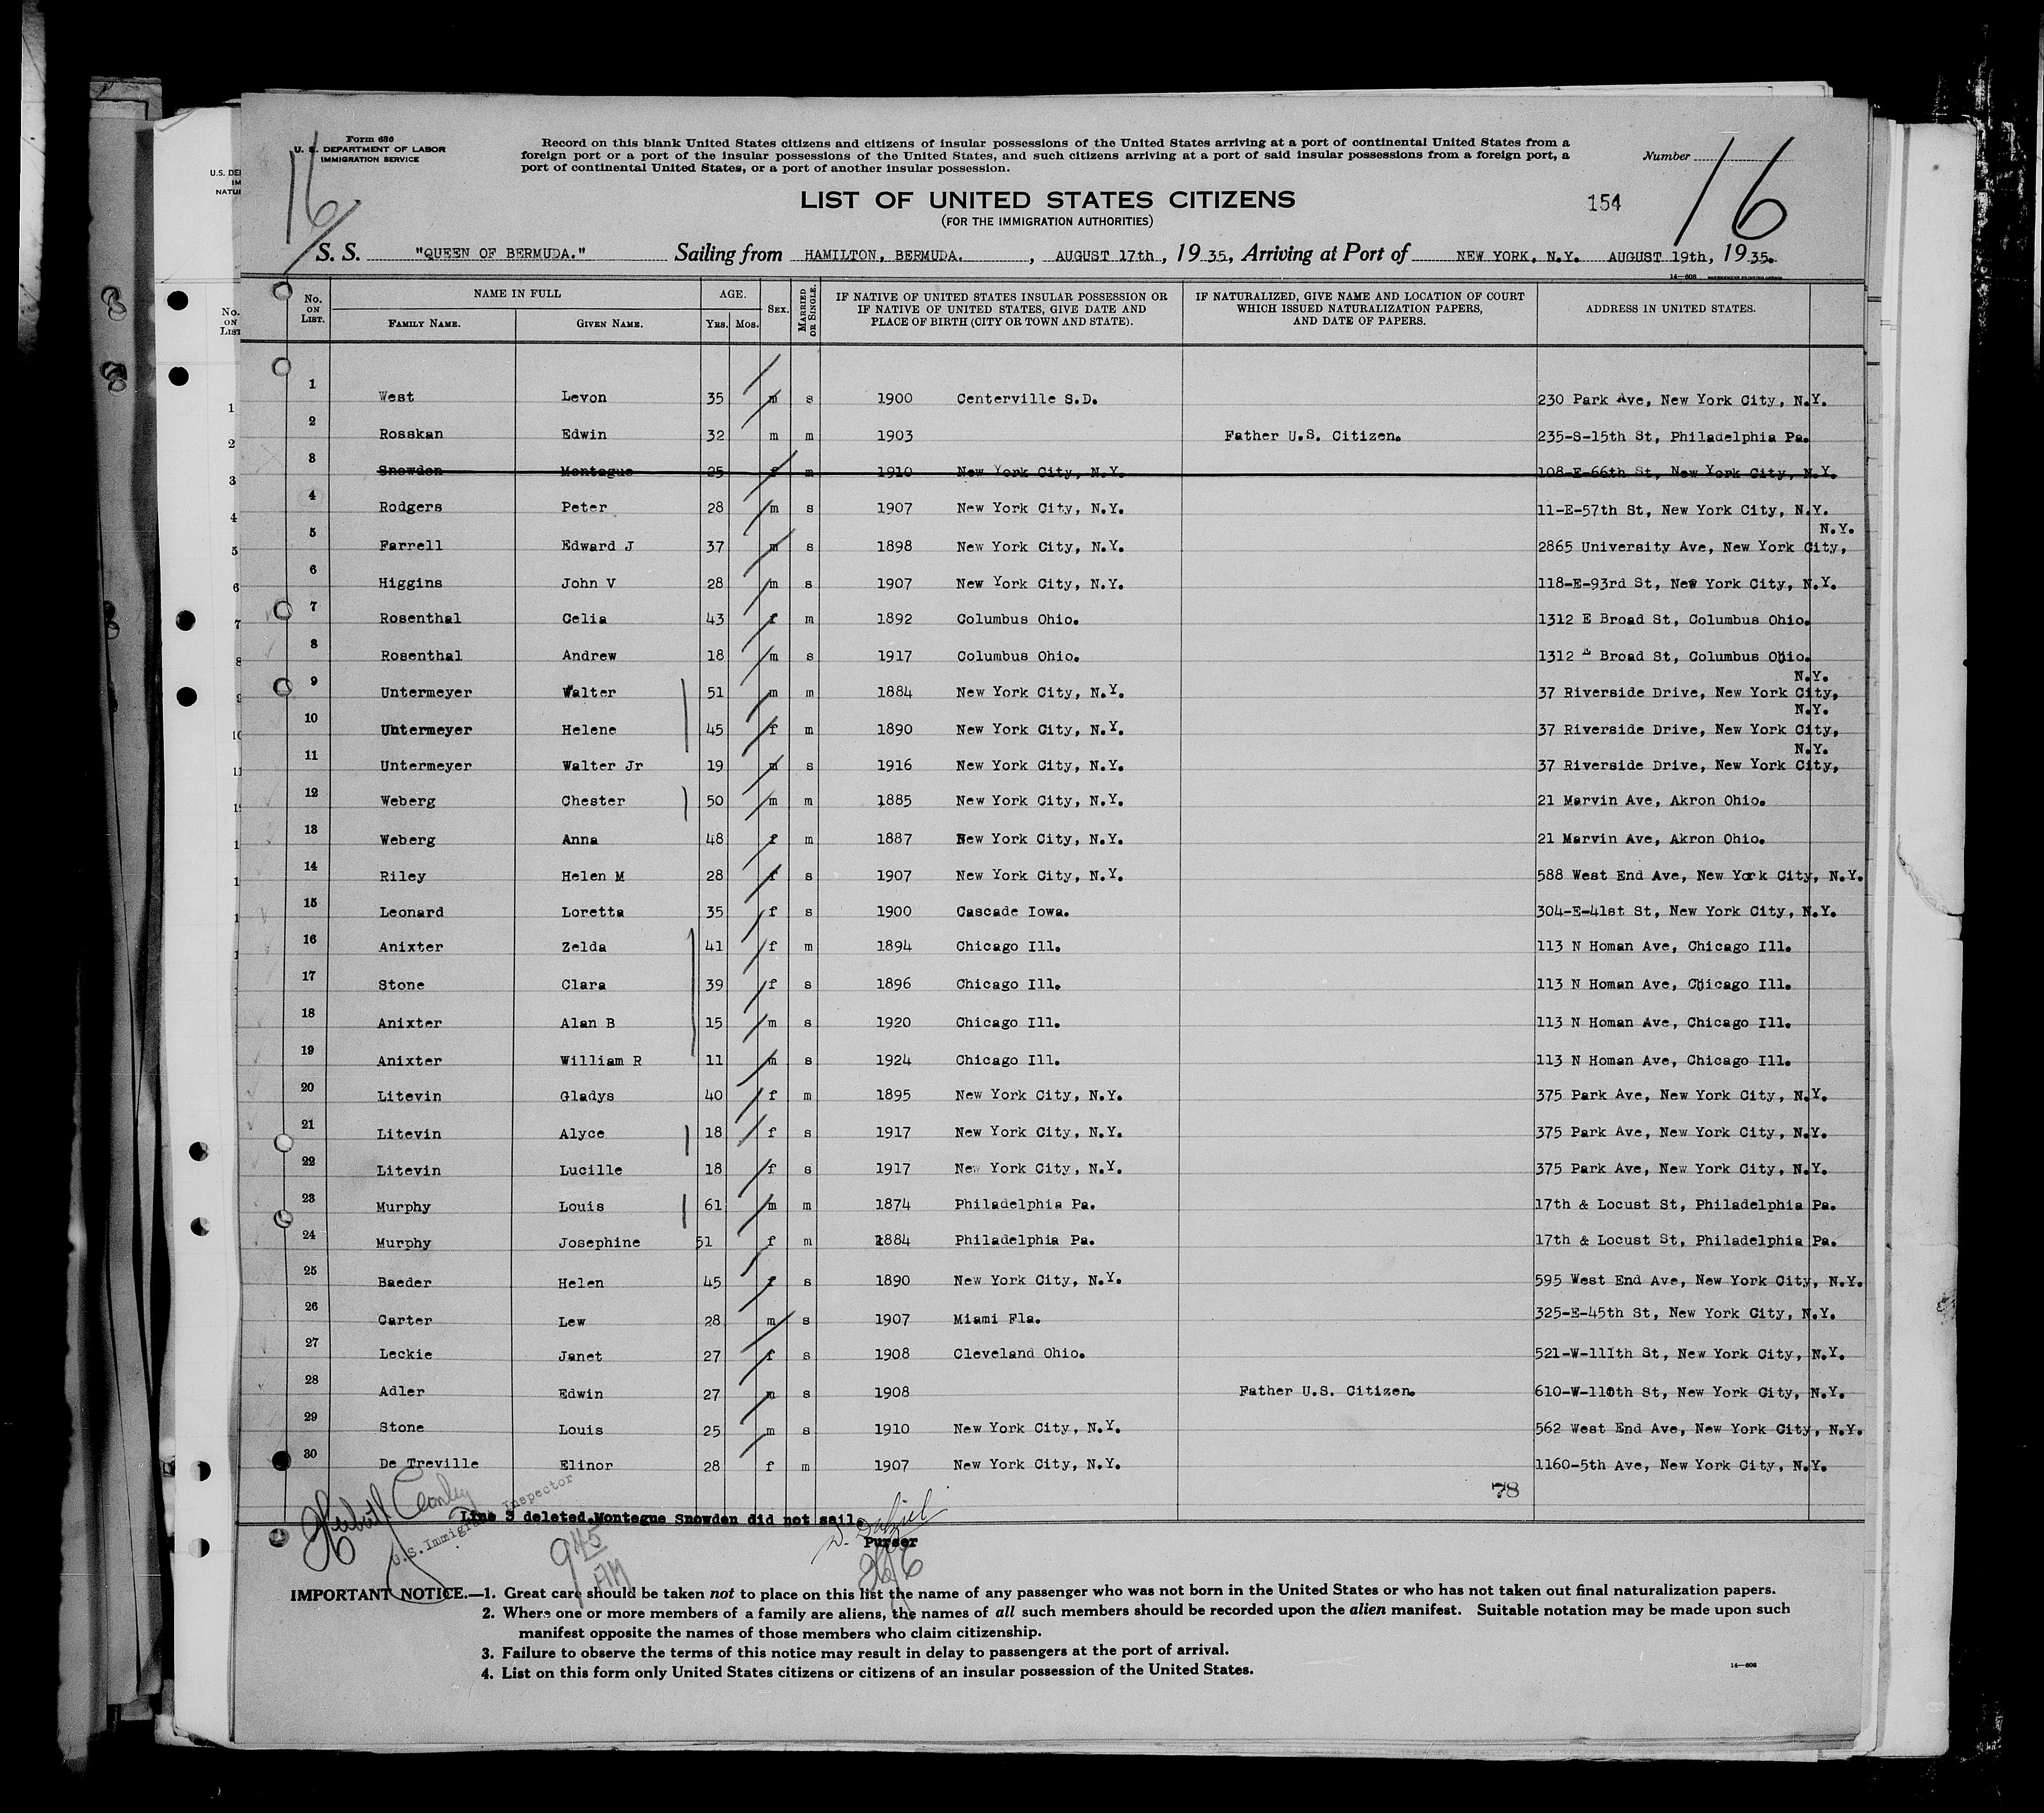 Form 630
U. S. DEPARTMENT OF LABOR
IMMIGRATION SERVICE
Record on this blank United States citizens and citizens of insular possessions of the United States arriving at a port of continental United States from a
foreign port or a port of the insular possessions of the United States, and such citizens arriving at a port of said insular possessions from a foreign port, a
port of continental United States, or a port of another insular possession.
Number 16
16
LIST OF UNITED STATES CITIZENS
154
(FOR THE IMMIGRATION AUTHORITIES)
S. S. "QUEEN OF BERMUDA." Sailing from HAMILTON, BERMUDA. , AUGUST 17th, 19 35, Arriving at Port of NEW YORK, N.Y. AUGUST 19th, 19 35.
No. ON LIST. NAME IN FULL FAMILY NAME. GIVEN NAME. AGE. YRS. MOS. SEX. MARRIED OR SINGLE. IF NATIVE OF UNITED STATES INSULAR POSSESSION OR IF NATIVE OF UNITED STATES, GIVE DATE AND PLACE OF BIRTH (CITY OR TOWN AND STATE). IF NATURALIZED, GIVE NAME AND LOCATION OF COURT WHICH ISSUED NATURALIZATION PAPERS, AND DATE OF PAPERS. ADDRESS IN UNITED STATES.
1 West Levon 35 m s 1900 Centerville S.D. 230 Park Ave, New York City, N.Y.
2 Rosskan Edwin 32 m m 1903 Father U.S. Citizen. 235-S-15th St, Philadelphia Pa.
3 Snowden Montague 25 f m 1910 New York City, N.Y. 108-E-66th St, New York City, N.Y.
4 Rodgers Peter 28 m s 1907 New York City, N.Y. 11-E-57th St, New York City, N.Y.
5 Farrell Edward J 37 m s 1898 New York City, N.Y. 2865 University Ave, New York City, N.Y.
6 Higgins John V 28 m s 1907 New York City, N.Y. 118-E-93rd St, New York City, N.Y.
7 Rosenthal Celia 43 f m 1892 Columbus Ohio. 1312 E Broad St, Columbus Ohio.
8 Rosenthal Andrew 18 m s 1917 Columbus Ohio. 1312 E Broad St, Columbus Ohio.
9 Untermeyer Walter 51 m m 1884 New York City, N.Y. 37 Riverside Drive, New York City, N.Y.
10 Untermeyer Helene 45 f m 1890 New York City, N.Y. 37 Riverside Drive, New York City, N.Y.
11 Untermeyer Walter Jr 19 m s 1916 New York City, N.Y. 37 Riverside Drive, New York City, N.Y.
12 Weberg Chester 50 m m 1885 New York City, N.Y. 21 Marvin Ave, Akron Ohio.
13 Weberg Anna 48 f m 1887 New York City, N.Y. 21 Marvin Ave, Akron Ohio.
14 Riley Helen M 28 f s 1907 New York City, N.Y. 588 West End Ave, New York City, N.Y.
15 Leonard Loretta 35 f s 1900 Cascade Iowa. 304-E-41st St, New York City, N.Y.
16 Anixter Zelda 41 f m 1894 Chicago Ill. 113 N Homan Ave, Chicago Ill.
17 Stone Clara 39 f s 1896 Chicago Ill. 113 N Homan Ave, Chicago Ill.
18 Anixter Alan B 15 m s 1920 Chicago Ill. 113 N Homan Ave, Chicago Ill.
19 Anixter William R 11 m s 1924 Chicago Ill. 113 N Homan Ave, Chicago Ill.
20 Litevin Gladys 40 f m 1895 New York City, N.Y. 375 Park Ave, New York City, N.Y.
21 Litevin Alyce 18 f s 1917 New York City, N.Y. 375 Park Ave, New York City, N.Y.
22 Litevin Lucille 18 f s 1917 New York City, N.Y. 375 Park Ave, New York City, N.Y.
23 Murphy Louis 61 m m 1874 Philadelphia Pa. 17th & Locust St, Philadelphia Pa.
24 Murphy Josephine 51 f m 1884 Philadelphia Pa. 17th & Locust St, Philadelphia Pa.
25 Baeder Helen 45 f s 1890 New York City, N.Y. 595 West End Ave, New York City, N.Y.
26 Carter Lew 28 m s 1907 Miami Fla. 325-E-45th St, New York City, N.Y.
27 Leckie Janet 27 f s 1908 Cleveland Ohio. 521-W-111th St, New York City, N.Y.
28 Adler Edwin 27 m s 1908 Father U.S. Citizen. 610-W-110th St, New York City, N.Y.
29 Stone Louis 25 m s 1910 New York City, N.Y. 562 West End Ave, New York City, N.Y.
30 De Treville Elinor 28 f m 1907 New York City, N.Y. 1160-5th Ave, New York City, N.Y.
78
U.S. Immigrant Inspector
Line 3 deleted. Montague Snowden did not sail.
Purser
9 45 AM
IMPORTANT NOTICE.—1. Great care should be taken not to place on this list the name of any passenger who was not born in the United States or who has not taken out final naturalization papers.
2. Where one or more members of a family are aliens, the names of all such members should be recorded upon the alien manifest. Suitable notation may be made upon such
manifest opposite the names of those members who claim citizenship.
3. Failure to observe the terms of this notice may result in delay to passengers at the port of arrival.
4. List on this form only United States citizens or citizens of an insular possession of the United States.